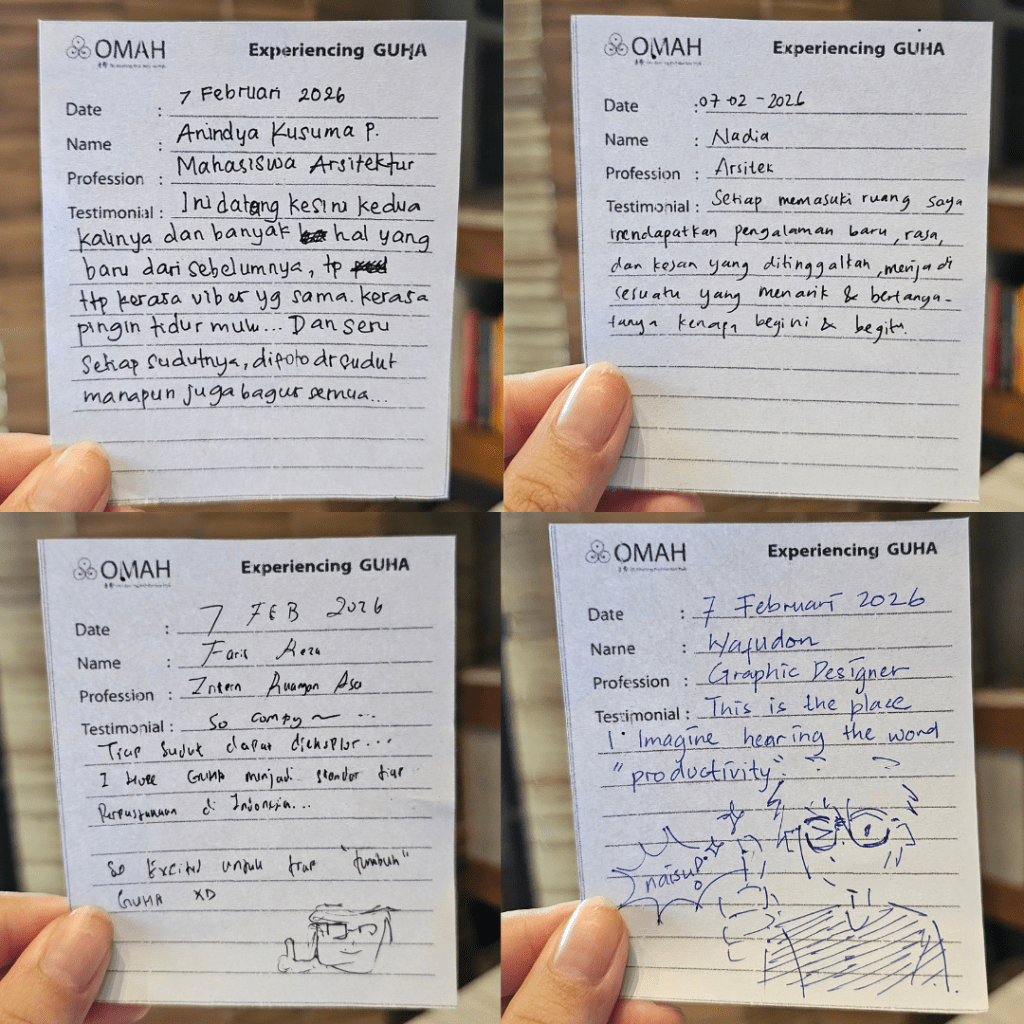 OMAH
Experiencing GUHA
Date : 7 Februari 2026
Name : Anindya Kusuma P.
Profession : Mahasiswa Arsitektur
Testimonial : Ini datang kesini kedua
kalinya dan banyak hal yang
baru dari sebelumnya, tp
ttp kerasa vibes yg sama. kerasa
pingin tidur mulu... Dan seru
Setiap sudutnya, difoto dr sudut
manapun juga bagus semua...
OMAH
Experiencing GUHA
Date : 07-02-2026
Name : Nadia
Profession : Arsitek
Testimonial : Setiap memasuki ruang saya
mendapatkan pengalaman baru, rasa,
dan kesan yang ditinggalkan, menjadi
sesuatu yang menarik & bertanya-
tanya kenapa begini & begitu.
OMAH
Experiencing GUHA
Date : 7 FEB 2026
Name : Faris Reza
Profession : Intern Ruangan Asa
Testimonial : So compy ~ ...
Tiap Sudut dapat dieksplor...
I Hope GUHA menjadi standar tiap
Perpustakaan di Indonesia...
So Excited untuk tiap "tumbuh"
GUHA XD
OMAH
Experiencing GUHA
Date : 7 Februari 2026
Name : Wafudon
Profession : Graphic Designer
Testimonial : This is the place
I Imagine hearing the word
"productivity".
naisu!